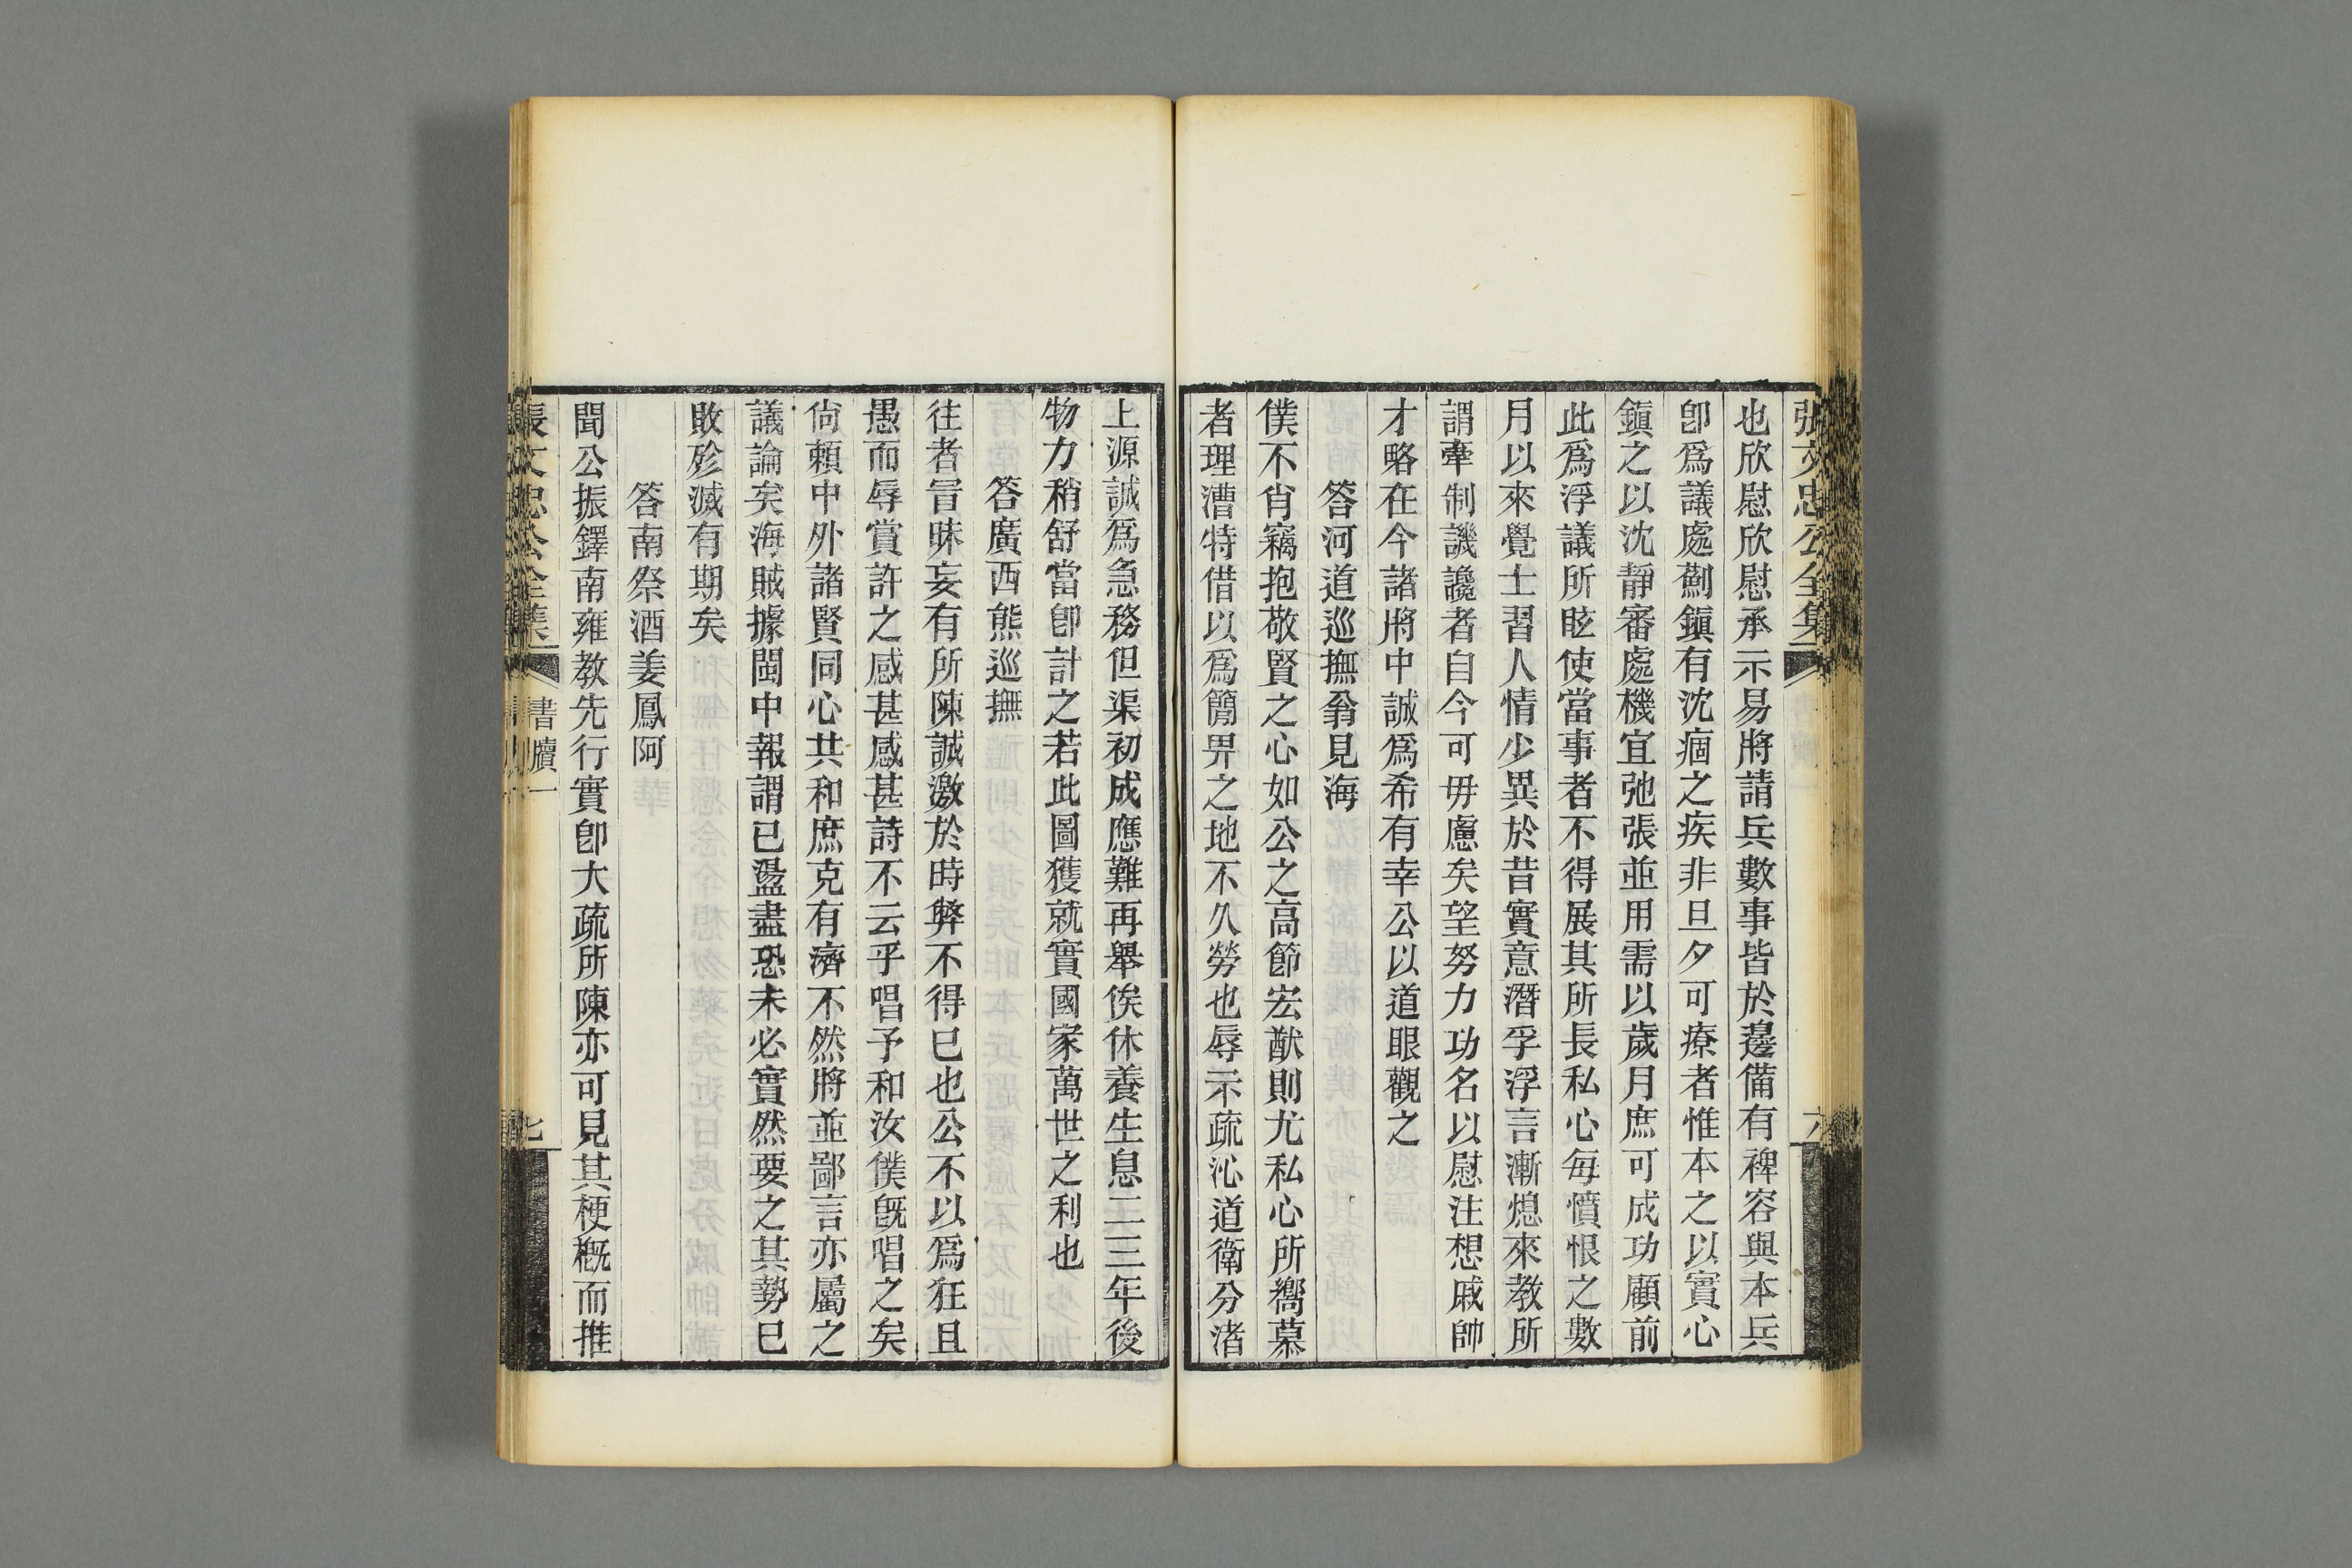 張文忠公全集
六
也欣慰欣慰承示易將請兵數事皆於邊備有裨容與本兵
卽爲議處薊鎭有沈痼之疾非旦夕可療者惟本之以實心
鎭之以沈靜審處機宜弛張並用需以歲月庶可成功顧前
此爲浮議所眩使當事者不得展其所長私心每憤恨之數
月以來覺士習人情少異於昔實意潛孚浮言漸熄來教所
謂牽制譏讒者自今可毋慮矣望努力功名以慰注想戚帥
才略在今諸將中誠爲希有幸公以道眼觀之
答河道巡撫翁見海
僕不肖竊抱敬賢之心如公之高節宏猷則尤私心所嚮慕
者理漕特借以爲簡畀之地不久勞也辱示疏沁道衛分渚
上源誠爲急務但渠初成應難再舉俟休養生息二三年後
物力稍舒當卽計之若此圖獲就實國家萬世之利也
答廣西熊巡撫
往者冒昧妄有所陳誠激於時弊不得已也公不以爲狂且
愚而辱賞許之感甚感甚詩不云乎唱予和汝僕旣唱之矣
尙賴中外諸賢同心共和庶克有濟不然將並鄙言亦屬之
議論矣海賊據閩中報謂已盪盡恐未必實然要之其勢已
敗殄滅有期矣
答南祭酒姜鳳阿
聞公振鐸南雍教先行實卽大疏所陳亦可見其梗概而推
張文忠公全集
書牘一
七